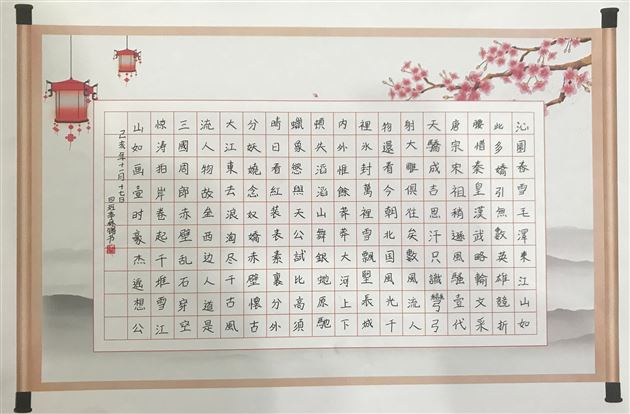 沁園春雪毛澤東江山如
此多嬌引無數英雄競折
腰惜秦皇漢武略輸文采
唐宗宋祖稍遜風騷壹代
天驕成吉思汗只識彎弓
射大雕俱往矣數風流人
物還看今朝北國風光千
裡氷封萬裡雪飄望長城
内外惟餘莽莽大河上下
頓失滔滔山舞銀蛇原馳
蠟象慾與天公試比高須
晴日看紅裝表素裹分外
分妖嬈念奴嬌赤壁懷古
大江東去浪淘尽千古風
流人物故垒西边人道是
三國周郎赤壁乱石穿空
惊涛拍岸卷起千堆雪江
山如画壹时豪杰遥想公
己亥年十一月十七日
书